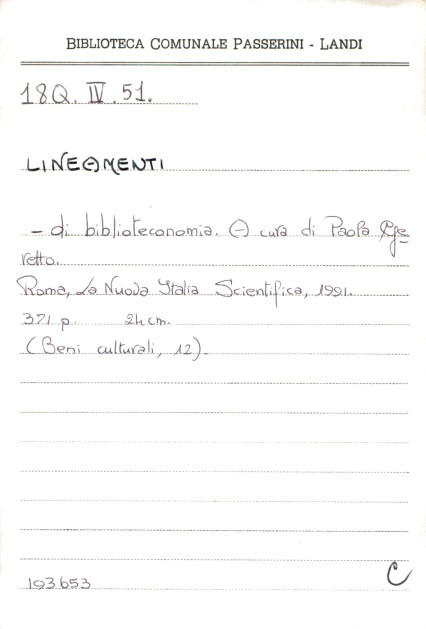 BIBLIOTECA COMUNALE PASSERINI - LANDI
18Q. IV. 51.
LINEAMENTI
- di biblioteconomia. A cura di Paola Ge=
retto.
Roma, La Nuova Italia Scientifica, 1991.
371 p. 24 cm.
(Beni culturali, 12).
193653
C